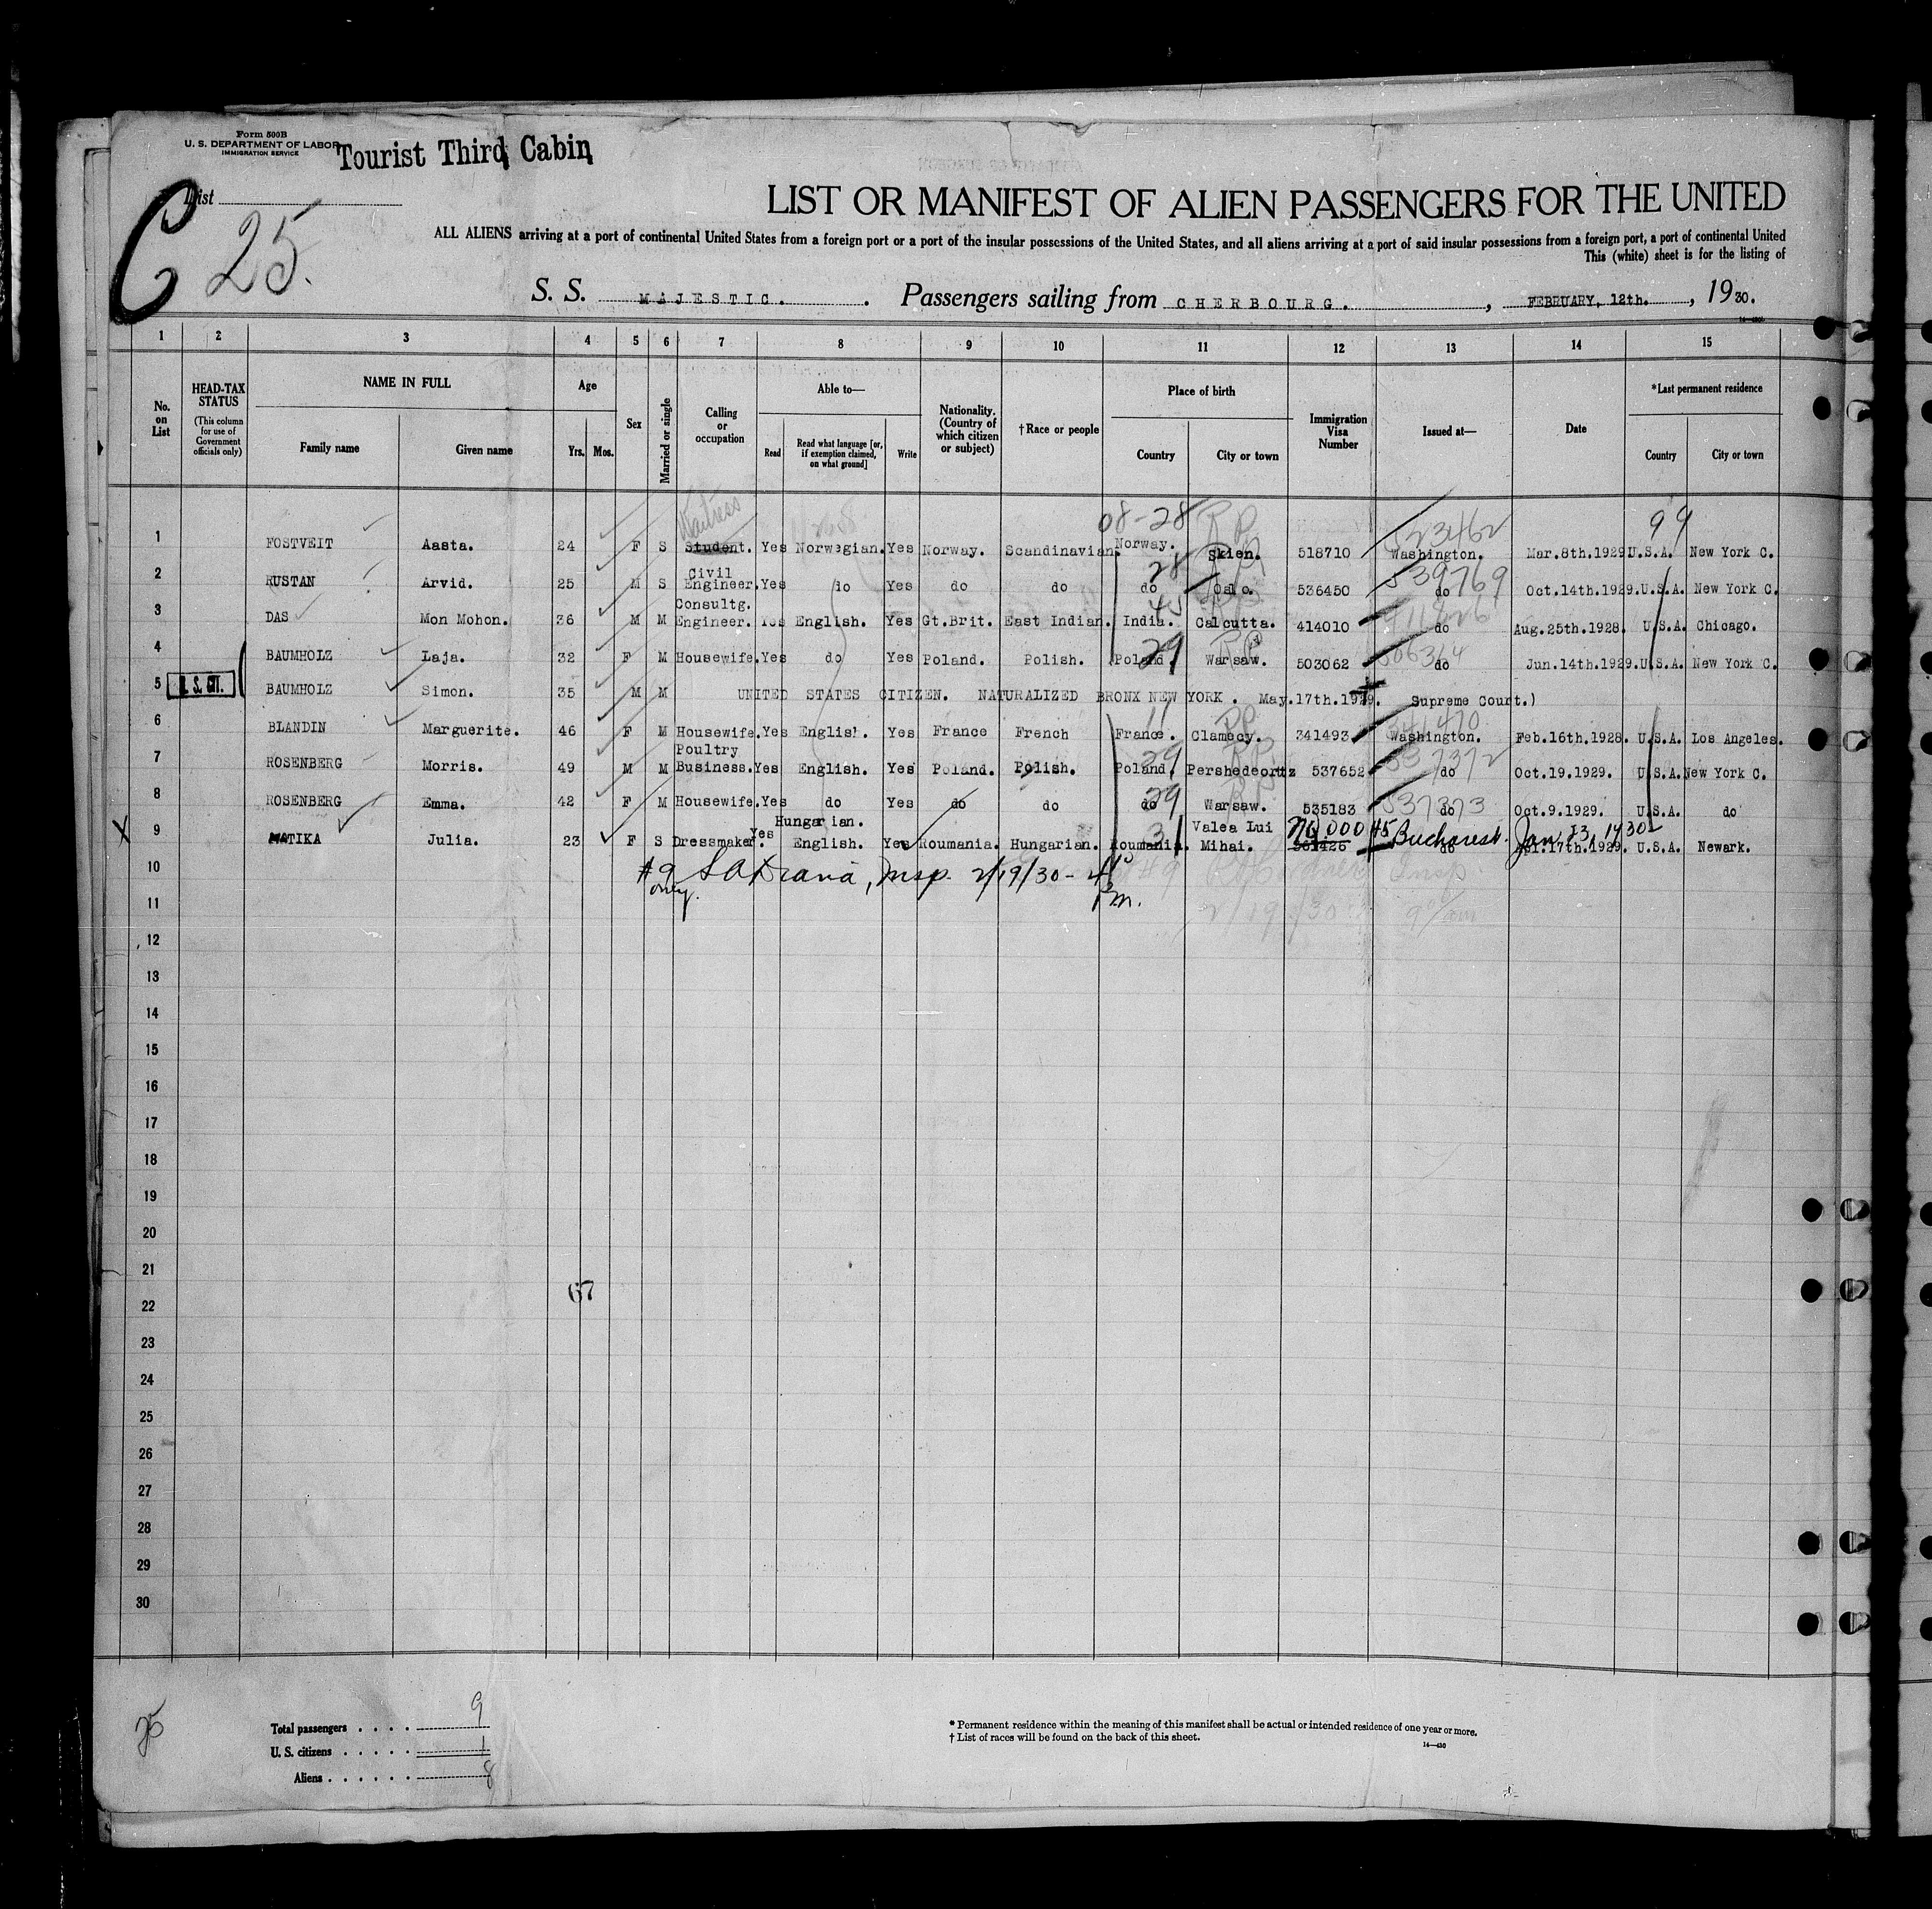 Form 500B
U. S. DEPARTMENT OF LABOR
IMMIGRATION SERVICE
Tourist Third Cabin
List
C 25.
LIST OR MANIFEST OF ALIEN PASSENGERS FOR THE UNITED
ALL ALIENS arriving at a port of continental United States from a foreign port or a port of the insular possessions of the United States, and all aliens arriving at a port of said insular possessions from a foreign port, a port of continental United
This (white) sheet is for the listing of
S. S. MAJESTIC. Passengers sailing from CHERBOURG. , FEBRUARY, 12th. , 1930.
1 2 3 4 5 6 7 8 9 10 11 12 13 14 15
No. on List
HEAD-TAX STATUS
(This column for use of Government officials only)
NAME IN FULL
Family name Given name
Age
Yrs. Mos.
Sex
Married or single
Calling or occupation
Able to—
Read Read what language [or, if exemption claimed, on what ground] Write
Nationality. (Country of which citizen or subject)
†Race or people
Place of birth
Country City or town
Immigration Visa Number
Issued at—
Date
*Last permanent residence
Country City or town
Waitress 08-28 RP 523462 99
1 FOSTVEIT Aasta. 24 F S Student. Yes Norwegian. Yes Norway. Scandinavian. Norway. Skien. 518710 Washington. Mar.8th.1929 U.S.A. New York C.
28 539769
2 RUSTAN Arvid. 25 M S Civil Engineer. Yes do Yes do do do Oslo. 536450 do Oct.14th.1929. U.S.A. New York C.
3 DAS Mon Mohon. 36 M M Consultg. Engineer. Yes English. Yes Gt.Brit. East Indian. India. Calcutta. 414010 do Aug.25th.1928. U.S.A. Chicago.
29 RP 506314
4 BAUMHOLZ Laja. 32 F M Housewife. Yes do Yes Poland. Polish. Poland. Warsaw. 503062 do Jun.14th.1929. U.S.A. New York C.
5 U. S. CIT. BAUMHOLZ Simon. 35 M M UNITED STATES CITIZEN. NATURALIZED BRONX NEW YORK . May.17th.1929. Supreme Court.)
11 RP 341470
6 BLANDIN Marguerite. 46 F M Housewife. Yes English. Yes France French France. Clamecy. 341493 Washington. Feb.16th.1928. U.S.A. Los Angeles.
29 RP 537372
7 ROSENBERG Morris. 49 M M Poultry Business. Yes English. Yes Poland. Polish. Poland. Pershedeortz 537652 do Oct.19.1929. U.S.A. New York C.
29 RP 537373
8 ROSENBERG Emma. 42 F M Housewife. Yes do Yes do do do Warsaw. 535183 do Oct.9.1929. U.S.A. do
X 9 MATIKA Julia. 23 F S Dressmaker. Yes Hungarian. English. Yes Roumania. Hungarian. Roumania. 31 Valea Lui Mihai. Bucharest. Jan 23, 1930 do 17th.1929. U.S.A. Newark.
10 #9 only. Insp. 2/19/30-
11 2/19/30 9 am
12
13
14
15
16
17
18
19
20
21
67
22
23
24
25
26
27
28
29
30
25
Total passengers . . . . 9
U. S. citizens . . . . . 1
Aliens . . . . . . 8
* Permanent residence within the meaning of this manifest shall be actual or intended residence of one year or more.
† List of races will be found on the back of this sheet.
14—430